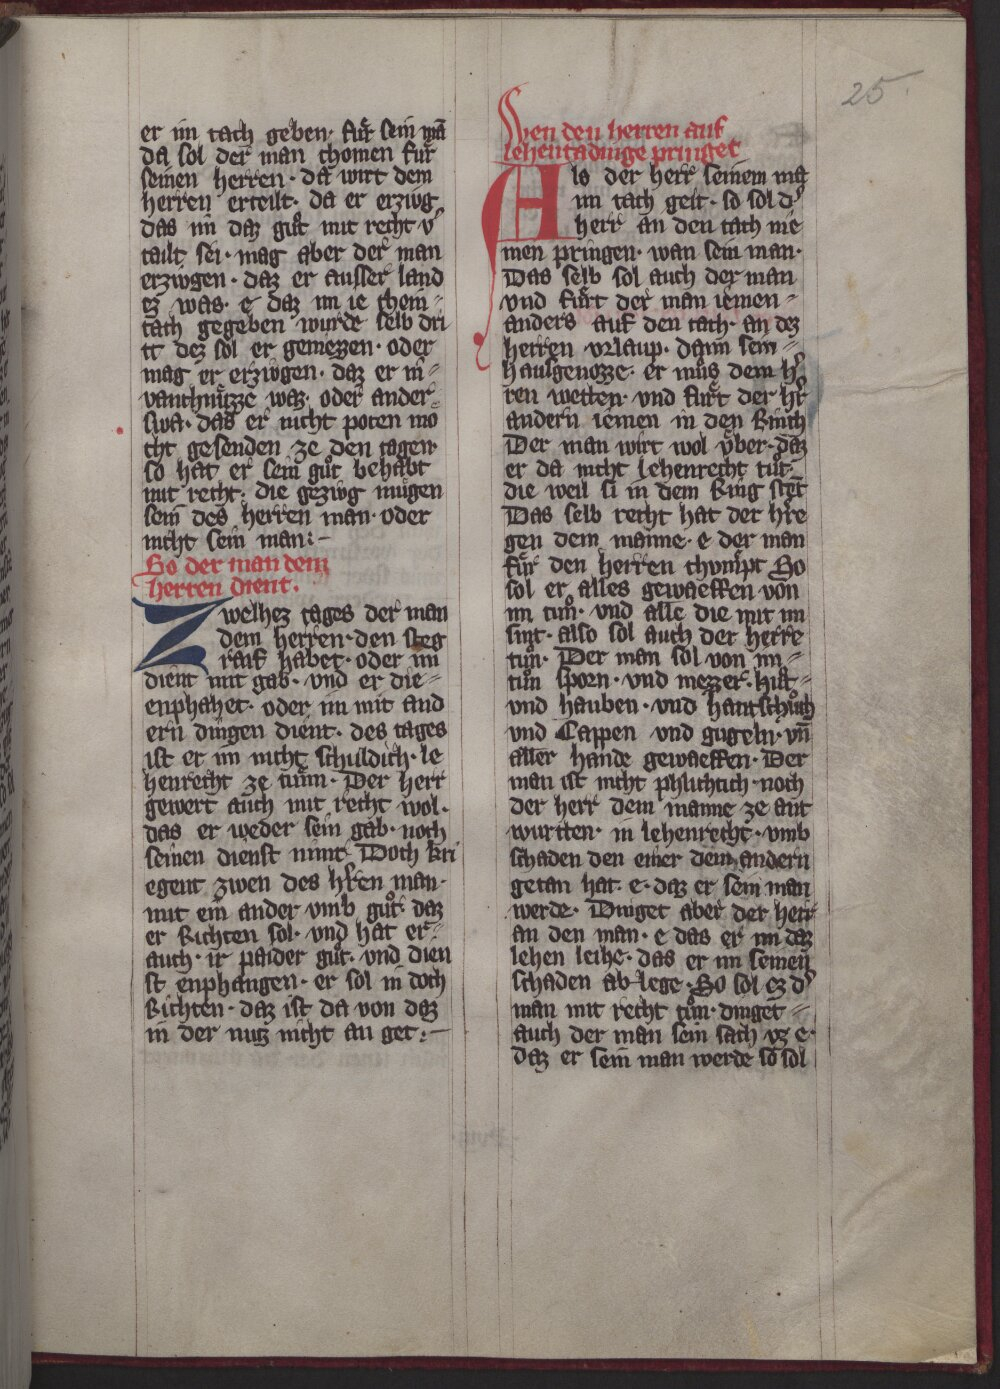 25
er im tach geben· für sein mā
da sol der man chomen für
seinen herren· da wirt dem
herren erteilt· da er erziug
das im daz guͦt mit recht v̓
tailt sei· mag aber der man
erziugen· daz er ausser land
ez was· e daz im ie chein⸗
tach gegeben wurde selb dri
tt dez sol er geniezzen· oder
mag er erziugen· daz er in⸗
vanchnüzze waz· oder ander⸗
swa· das er nicht poten mo
cht gesenden ze den tagen·
so hat er sein guͦt behabt
mit recht· die geziug mügen
sein des herren man· oder
nicht sein man:–
So der man dem
herren dient.
Zwelhez tages der man
dem herren· den steg
raif habet· oder im
dient mit gab· vnd er die⸗
enphahet· oder im mit and
ern dingen dient· des tages
ist er im nicht schuldich· le
henrecht ze tuͦnn· Der herr
gewert auch mit recht wol·
das er weder sein gab· noch
seinen dienst nimt Doch kri
egent zwen des hr̄en man·
mit ein ander vmb guͦt· daz
er Richten sol· vnd hat er⸗
auch· ir paider guͦt· vnd dien
st enphangen· er sol in doch
Richten· daz ist da von daz
in der nutz nicht an get:–
Wen den herren auf
lehentadinge pringet
Als der herr seinem mā
im tach geit· so sol d̓
herr an den tach nie
men pringen· wan sein man·
Das selb sol auch der man
vnd fürt der man iemen⸗
anders auf den tach· an dez
herren vrlaup· dann sein⸗
hausgenozze· er mus dem h̓
ren wetten· vnd fürt der hr̄
andern iemen in den Rinch
Der man wirt wol über· daz
er da nicht lehenrecht tuͦt·
die weil si in dem Ring stet
Das selb recht hat der hr̄e
gen dem manne· e der man
für den herren chvmpt So
sol er alles gewaeffen von
im tuͦn· vnd alle die mit im
sint· also sol auch der herre
tuͦn· Der man sol von im⸗
tuͦn sporn· vnd mezzer· huͦt⸗
vnd hauben· vnd hantschuͦch
vnd Cappen vnd gugeln· vn̄
aller hande gewaeffen· Der
man ist nicht phlichtich· noch
der herr dem manne ze ant
wurtten· in lehenrecht· vmb
schaden den einer dem andern
getan hat· e· daz er sein man
werde· Dinget aber der herr
an den man· e das er im daz
lehen leihe· das er im seinen
schaden ab lege· So sol ez d̓
man mit recht tuͦn· dinget⸗
auch der man sein sach vz e·
daz er sein man werde so sol